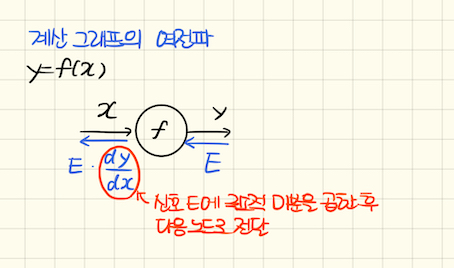 계산 그래프의 역전파
y=f(x)
x
f
y
E · dy/dx
E
신호 E에 국소적 미분을 곱한 후
다음 노드로 전달